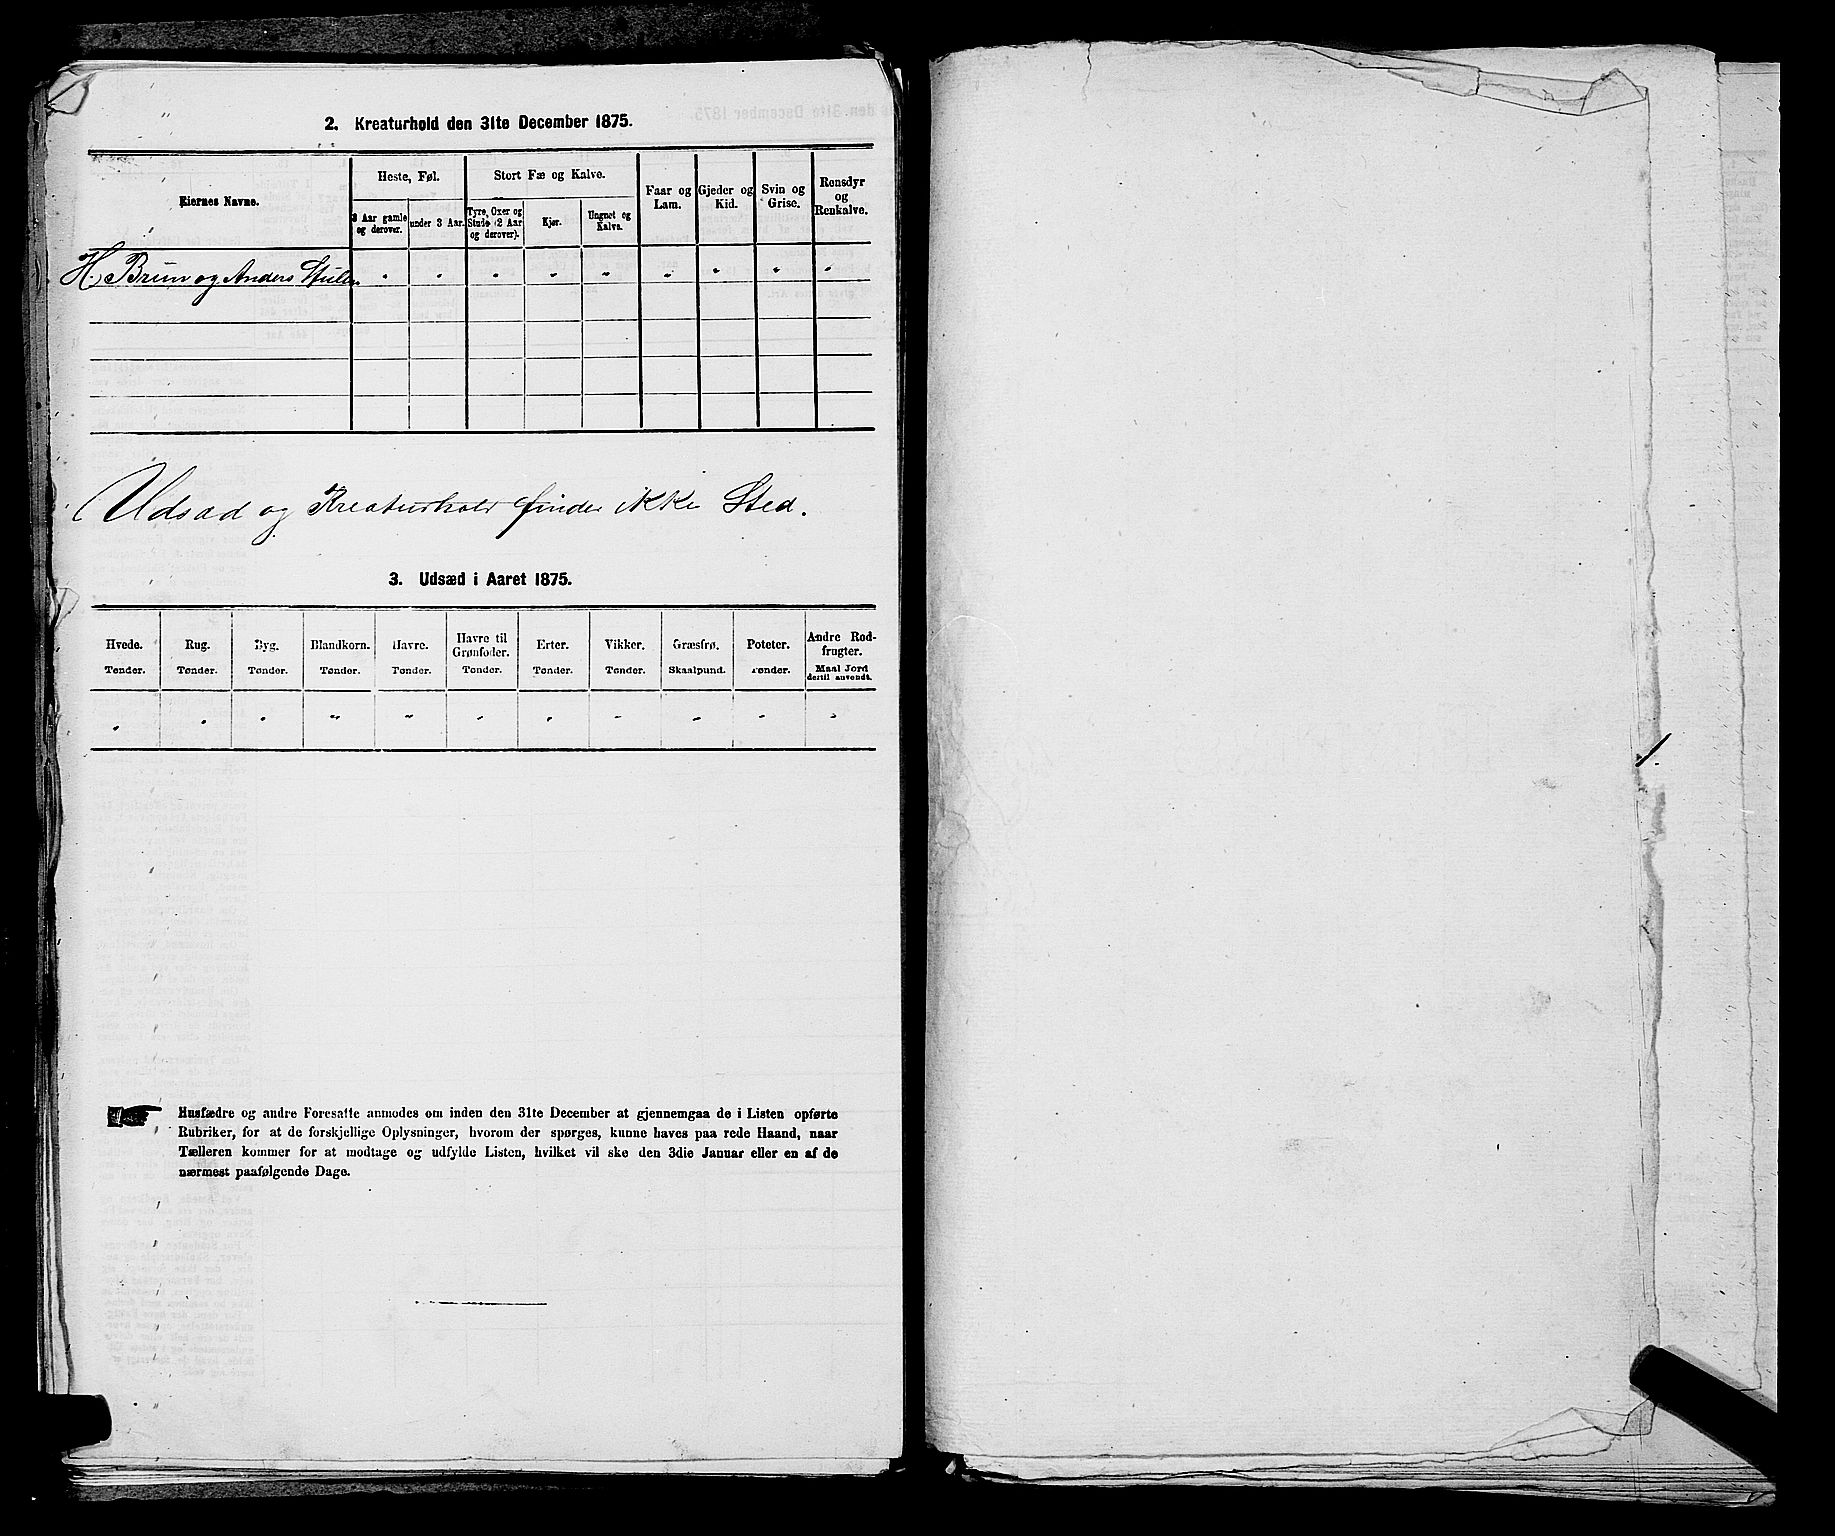 2. Kreaturhold den 31te December 1875.
Eiernes Navne.
Heste, Føl.
Stort Fæ og Kalve.
Faar og Lam.
Gjeder og Kid.
Svin og Grise.
Rensdyr og Renkalve.
3 Aar gamle og derover.
under 3 Aar.
Tyre, Oxer og Stude (2 Aar og derover).
Kjør.
Ungnet og Kalve.
H. Brun og Anders
" " " " " " " " "
Udsæd og Kreaturhold finder ikke Sted.
3. Udsæd i Aaret 1875.
Hvede. Rug. Byg. Blandkorn. Havre. Havre til Grønfoder. Erter. Vikker. Græsfrø. Poteter. Andre Rodfrugter.
Tønder. Tønder. Tønder. Tønder. Tønder. Tønder. Tønder. Tønder. Skaalpund. Tønder. Maal Jord dertil anvendt.
" " " " " " " " " " "
Husfædre og andre Foresatte anmodes om inden den 31te December at gjennemgaa de i Listen opførte
Rubriker, for at de forskjellige Oplysninger, hvorom der spørges, kunne haves paa rede Haand, naar
Tælleren kommer for at modtage og udfylde Listen, hvilket vil ske den 3die Januar eller en af de
nærmest paafølgende Dage.